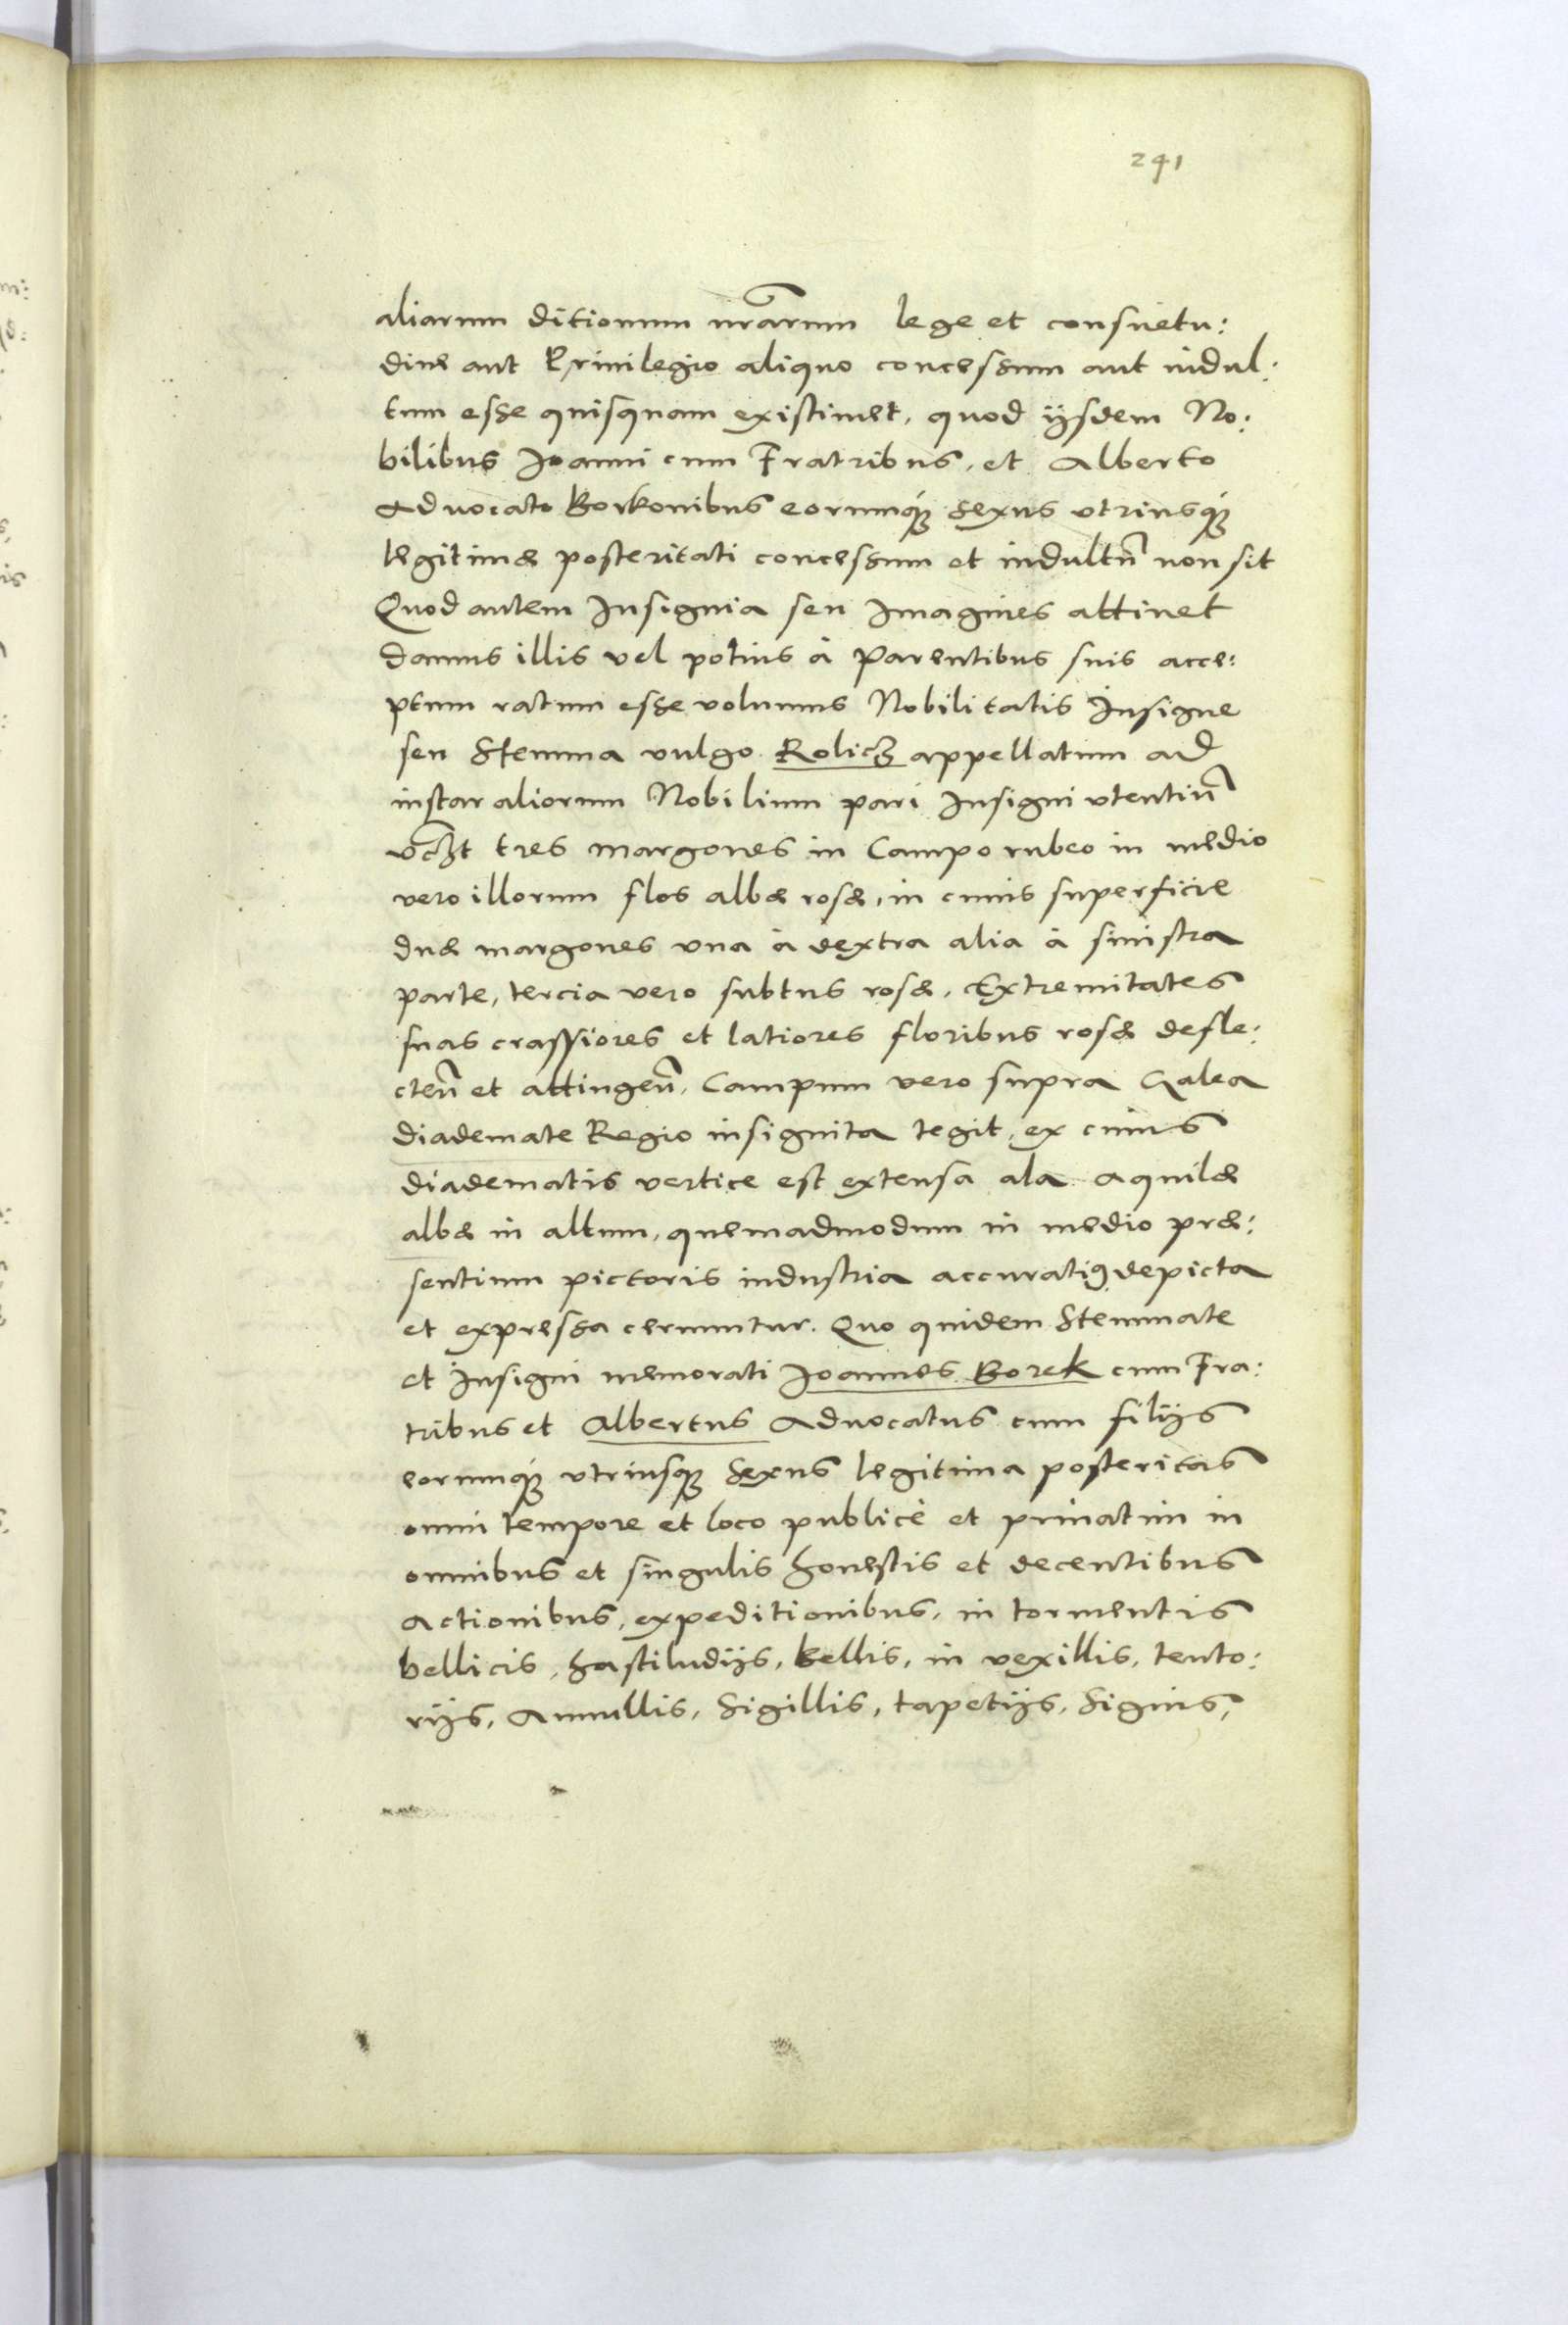 241
aliarum ditionum nr̃arum lege et consuetu:
dine aut Priuilegio aliquo concessum aut indul:
tum esse quisquam existimet, quod ijsdem No:
bilibus Joanni cum Fratribus, et Alberto
Aduocato Borkonibus eorumq́ꝫ sexus vtriusq́ꝫ
legitimæ posteritati concessum et indultũ non sit
Quod autem Insignia seu Imagines attinet
damus illis vel potius à Parentibus suis acce:
ptum ratum esse volumus Nobilitatis Insigne
seu Stemma vulgo Rolicz appellatum ad
instar aliorum Nobilium pari Insigni vtentiũ
vcꝫt tres margones in Campo rubeo in medio
vero illorum flos albæ rosæ, in cuius superficie
duæ margones vna à dextra alia à sinistra
parte, tercia vero subtus rosæ. Extremitates
suas crassiores et latiores floribus rosæ defle:
cteñ et attingeñ. Campum vero supra Galea
diademate Regio insignita tegit, ex cuius
diadematis vertice est extensa ala aquilæ
albæ in altum, quemadmodum in medio præ:
sentium pictoris industria accuratiꝰ depicta
et expressa cernuntur. Quo quidem Stemmate
et Insigni memorati Joannes Borek cum Fra:
tribus et Albertus Aduocatus cum filijs
eorumq́ꝫ vtriusqꝫ sexus legitima posteritas
omni tempore et loco publicè et priuatim in
omnibus et singulis honestis et decentibus
Actionibus, expeditionibus, in tormentis
bellicis, hastiludijs, bellis, in vexillis, tento:
rijs, Annullis, Sigillis, tapetijs, Signis,